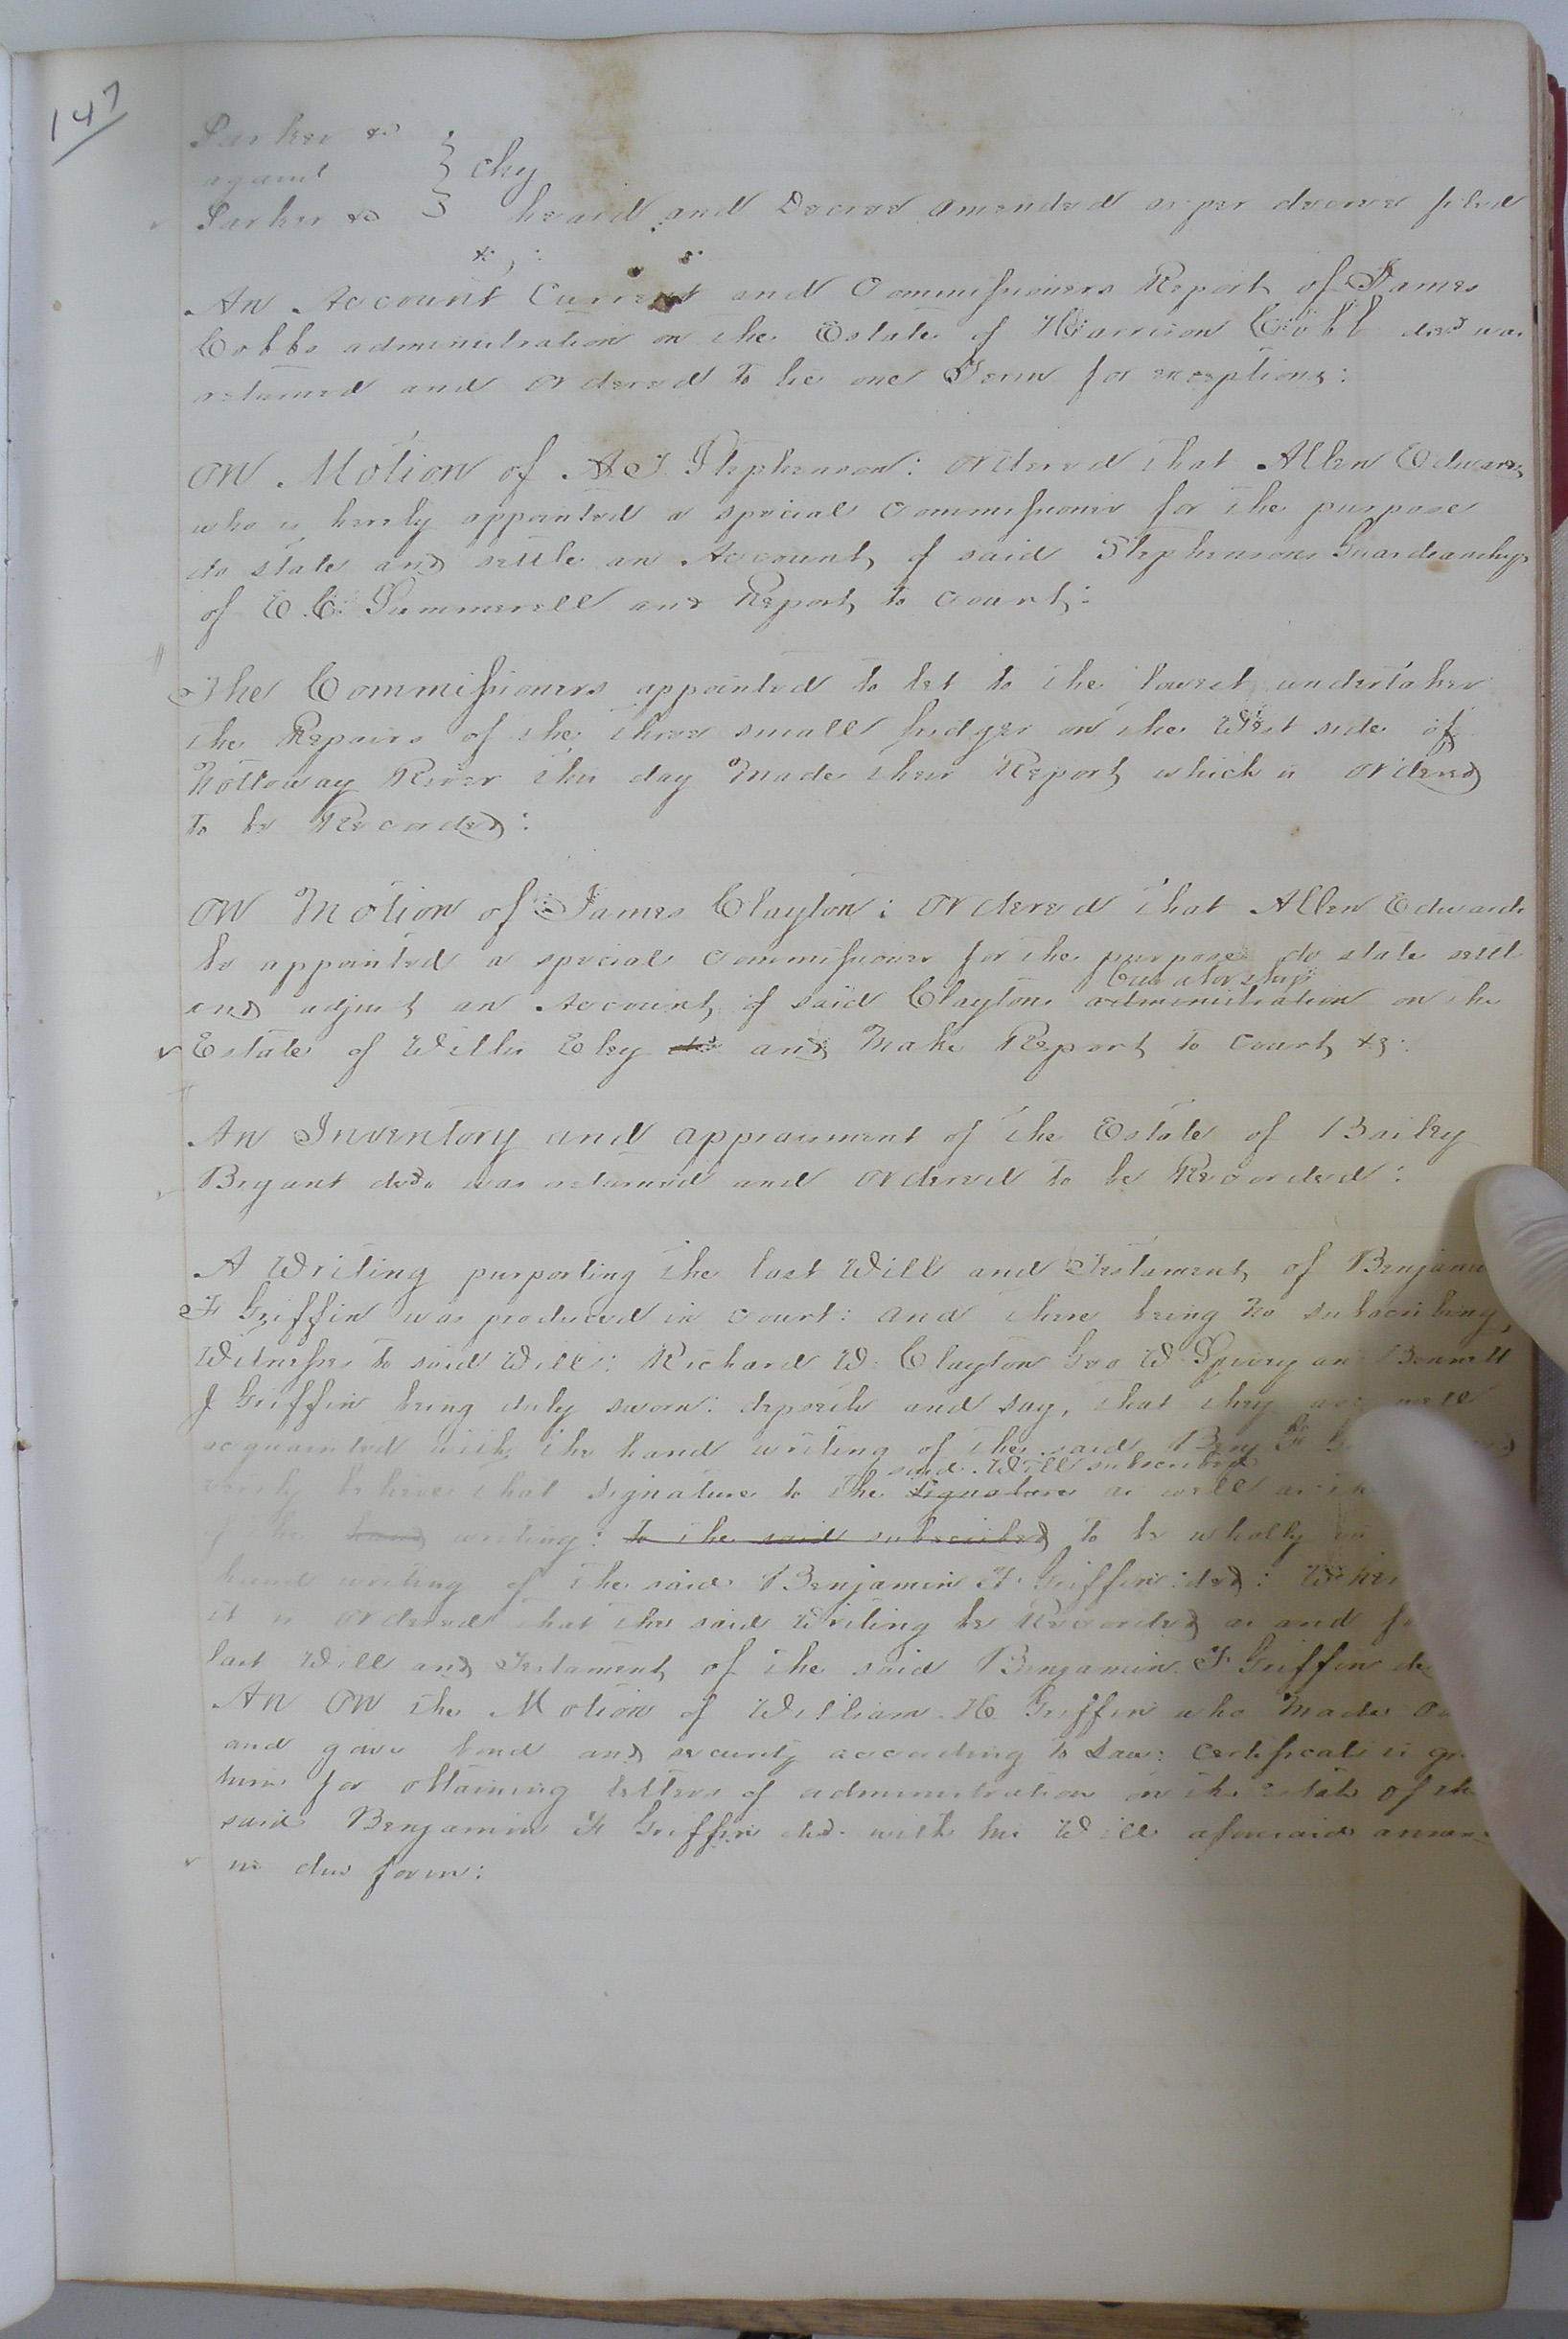 147
Parker &c
against } chy
Parker &c } heard and Decree amended as per decree filed
An Account Current and Commissioners Report of James
Cobbs administration on the Estate of Harrison Cobb decd was
returned and ordered to lie one Term for exceptions:
On Motion of A J Stephenson: ordered that Allen Edwards
who is hereby appointed a special Commissioner for the purpose
do state and settle an Account of said Stephensons Guardianship
of E. C. Summerell and Report to Court:
The Commissioners appointed to let to the lowest undertaker
the Repairs of the three small bridges on the West side of
Nottoway River this day Made their Report which is ordered
to be Recorded:
On Motion of James Clayton: ordered that Allen Edwards
be appointed a special Commissioner for the purpose do state settle
Curatorship
and adjust an Account of said Claytons administration on the
Estate of Willis Eley decd and Make Report to Court &c:
An Inventory and appraisment of the Estate of Bailey
Bryant decd. was returned and ordered to be Recorded:
A Writing purporting the last Will and Testament of Benjamin
F Griffin was produced in Court: and there being no subscribing
Witnesses to said Will: Richard W. Clayton Geo W. Spivey and Bennett
J Griffin being duly sworn: deposeth and say, that they are well
acquainted with the hand writing of the said Benj F
said Will subscribed
verily believe that signature to the signature as well as
of the hand writing: to the said subscribed to be wholly in
hand writing of the said Benjamin F. Griffin decd:
it is ordered that the said Writing be Recorded as and
last Will and Testament of the said Benjamin F Griffin
An On the Motion of William H Griffin who Made
and gave bond and security according to Law: Certificate is
him for obtaining letters of administration on the estate of the
said Benjamin F Griffin decd. with his Will aforesaid annexed
in due form: